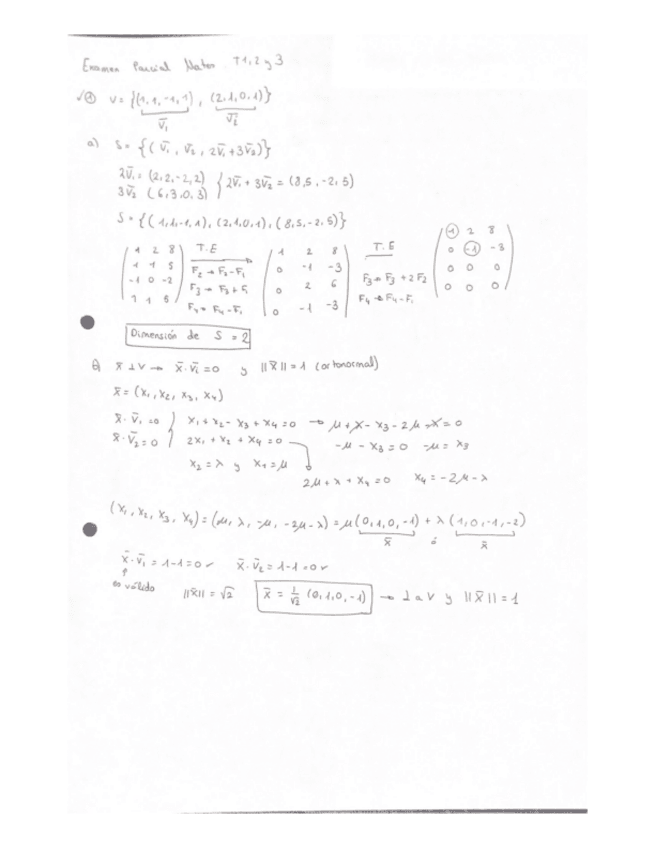 Examen Parcial Mates T1,2 y 3
√① V = {(1,1,-1,1), (2,1,0,1)}
v̄₁ v̄₂
a) S = {(v̄₁, v̄₂, 2v̄₁+3v̄₂)}
2v̄₁ = (2,2,-2,2)
3v̄₂ (6,3,0,3) } 2v̄₁ + 3v̄₂ = (8,5,-2,5)
S = {(1,1,-1,1), (2,1,0,1), (8,5,-2,5)}
T.E T.E
1 2 8
1 1 5
-1 0 -2
1 1 5
F₂ → F₂-F₁
F₃ → F₃+F₁
F₄ → F₄-F₁
1 2 8
0 -1 -3
0 2 6
0 -1 -3
F₃ → F₃ + 2F₂
F₄ → F₄-F₁
1 2 8
0 -1 -3
0 0 0
0 0 0
Dimensión de S = 2
b) x̄ ⊥ V → x̄·v̄ᵢ = 0 y ||x̄|| = 1 (ortonormal)
x̄ = (x₁, x₂, x₃, x₄)
x̄·v̄₁ = 0 } x₁ + x₂ - x₃ + x₄ = 0 → μ + λ - x₃ - 2μ - λ = 0
x̄·v̄₂ = 0 } 2x₁ + x₂ + x₄ = 0 -μ - x₃ = 0 -μ = λ₃
x₂ = λ y x₁ = μ
2μ + λ + x₄ = 0 x₄ = -2μ - λ
(x₁, x₂, x₃, x₄) = (μ, λ, -μ, -2μ-λ) = μ(0,1,0,-1) + λ(1,0,-1,-2)
x̄ ó x̄
x̄·v̄₁ = 1-1 = 0 ✓ x̄·v̄₂ = 1-1 = 0 ✓
↑
es válido ||x̄|| = √2 x̄ = 1/√2 (0,1,0,-1) → ⊥ a V y ||x̄|| = 1